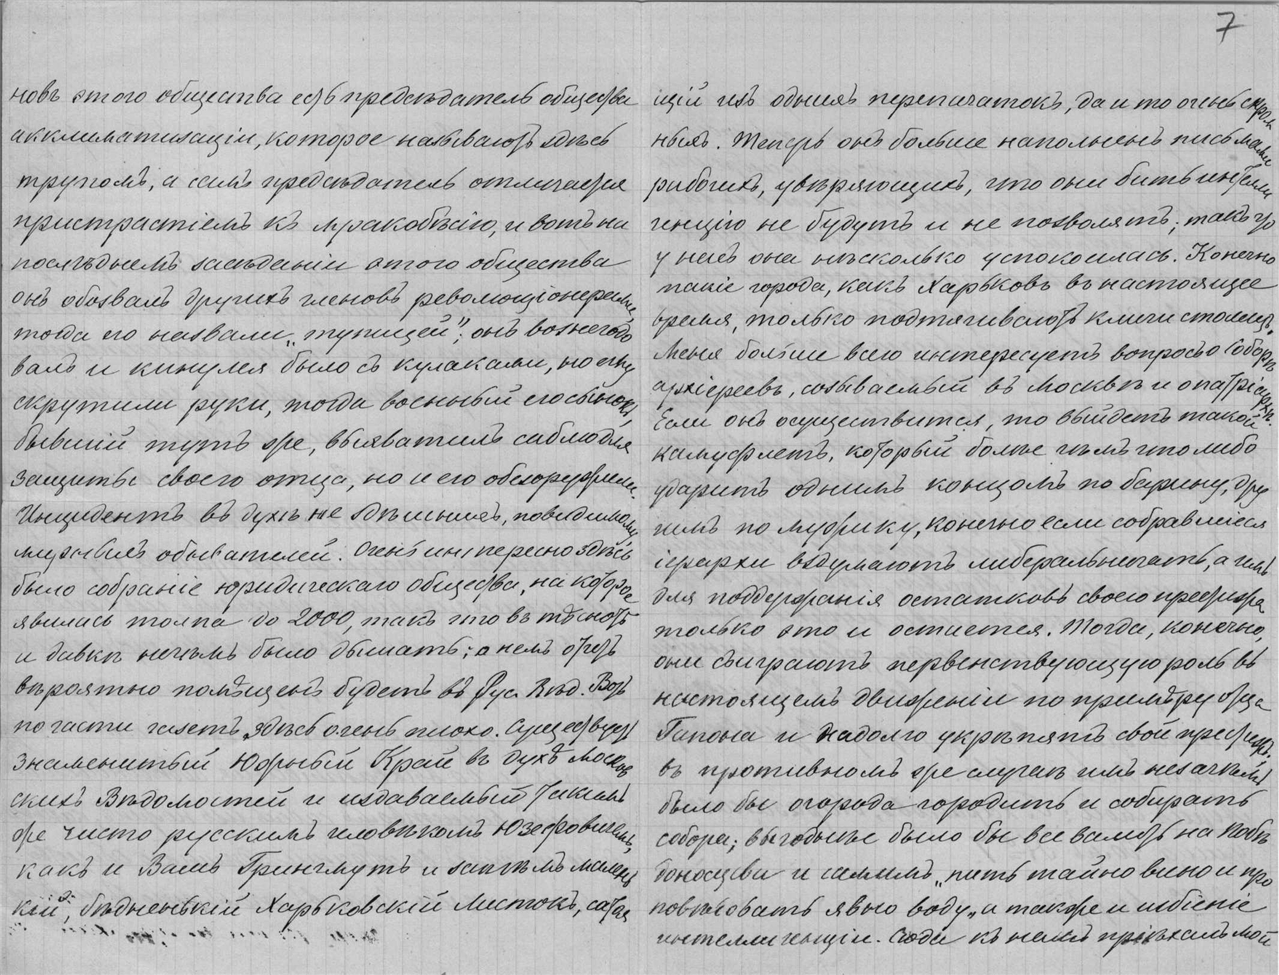 7
новъ этого общества есть председатель общества
акклиматизаціи, которое называютъ здѣсь
трупомъ, а самъ председатель отличается
пристрастіемъ къ мракобѣсію, и вотъ на
послѣднемъ засѣданіи этого общества
онъ обозвалъ другихъ членовъ революціонерами,
тогда его назвали „тупицей"; онъ вознегодо
валъ и кинулся было съ кулаками, но ему
скрутили руки, тогда военный его сынокъ,
бывшій тутъ же, выхватилъ саблю для
защиты своего отца, но и его обезоружили.
Инцидентъ въ духѣ не здѣшнихъ, повидимому
мирныхъ обывателей. Очень интересно здѣсь
было собраніе юридическаго общества, на которое
явилась толпа до 2000, такъ что въ тѣснотѣ
и давкѣ нечѣмъ было дышать; о немъ отчетъ
вѣроятно помѣщенъ будетъ въ Рус. Вѣд. Вотъ
по части газетъ здѣсь очень плохо. Существуетъ
знаменитый Южный Край въ духѣ москов
скихъ Вѣдомостей и издаваемый такимъ
же чисто русскимъ человѣкомъ Юзефовичемъ,
какъ и Вашъ Грингмутъ и затѣмъ малень
кій, бѣдненькій Харьковскій Листокъ, состоя
щій изъ однихъ перепечатокъ, да и то очень скром
ныхъ. Теперь онъ больше наполненъ письмами
рабочихъ, увѣряющихъ, что они бить интелли
генцію не будутъ и не позволятъ; такъ что
у насъ она нѣсколько успокоилась. Конечно
такіе города, какъ Харьковъ въ настоящее
время, только подтягиваютъ кличи столицъ.
Меня больше всего интересуетъ вопросъ о Соборѣ
архіереевъ, созываемый въ Москвѣ и о патріархѣ.
Если онъ осуществится, то выйдетъ такой
камуфлетъ, который болѣе чѣмъ что либо
ударитъ однимъ концомъ по барину, дру
гимъ по мужику, конечно если собравшіеся
іерархи вздумаютъ либеральничать, а имъ
для поддержанія остатковъ своего престижа
только это и остается. Тогда, конечно,
они съиграютъ первенствующую роль въ
настоящемъ движеніи по примѣру отца
Гапона и надолго укрѣпятъ свой престижъ,
въ противномъ же случаѣ имъ незачѣмъ
было бы огорода городить и собирать
собора; выгоднѣе было бы все валить на Побѣ
доносцева и самимъ „пить тайно вино и про
повѣдовать явно воду", а также и избіеніе
интеллигенціи. Сюда къ намъ пріѣхалъ мой